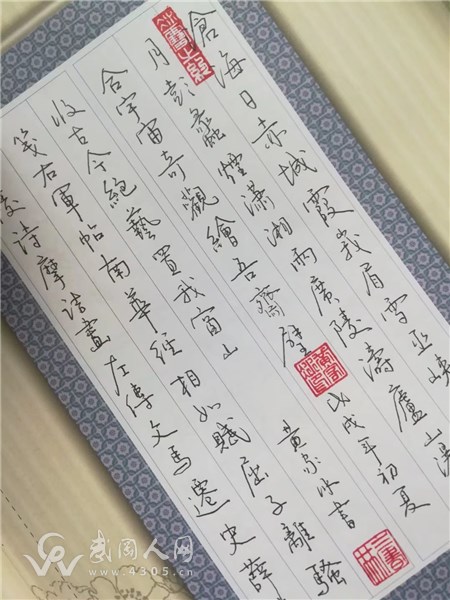 滄海日赤城霞峩眉雪巫峽
月彭蠡煙瀟湘雨廣陵濤廬山瀑
合宇宙奇觀繪吾齋壁
戊戌年初夏
收古今絕藝置我窗山
黄家書
箋右軍帖南華經相如賦屈子離騷
陵詩摩詰畫左傳文馬遷史薛
武冈人网
www.4305.cn